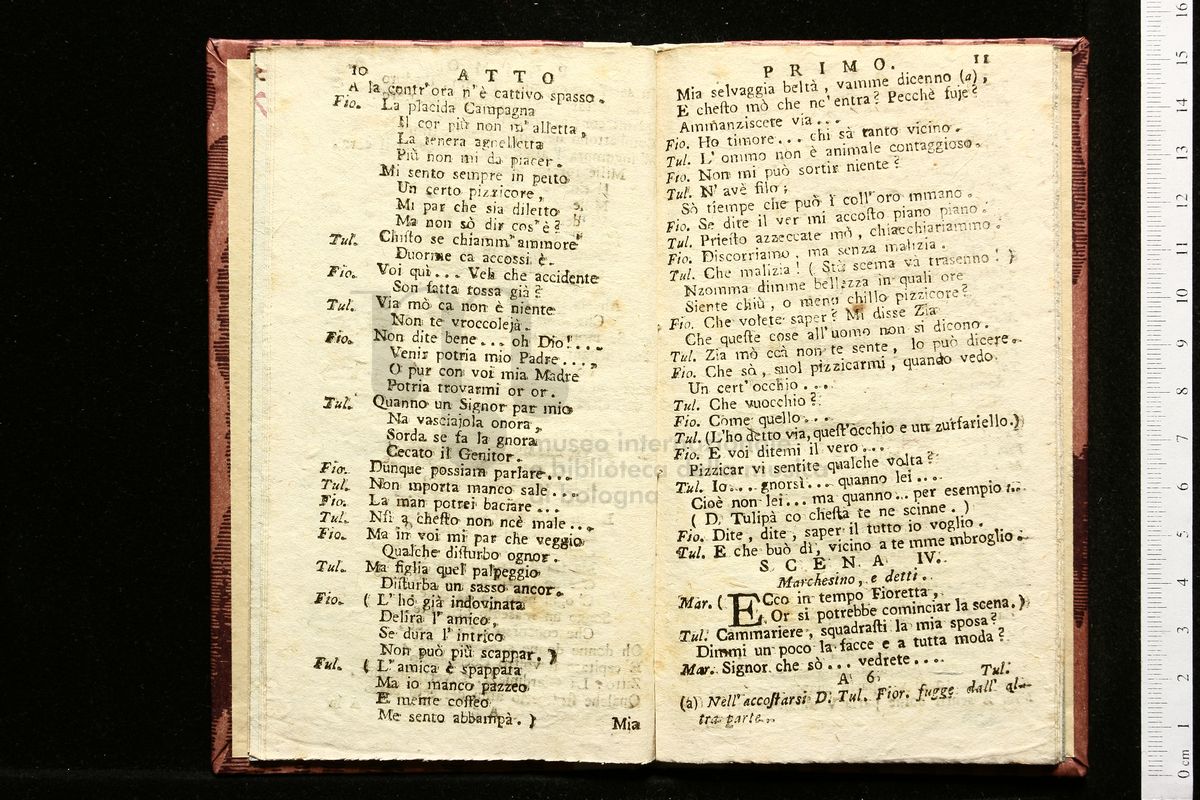 10 ATTO
A la contr'ora n'è cattivo spasso.
Fio. La placida Campagna
Il cor più non m'alletta,
La tenera agnelletta
Più non mi da piacer.
Mi sento sempre in petto
Un certo pizzicore,
Mi par che sia diletto
Ma non sò dir cos'è?
Tul. Chisto se chiamm'ammore
Duorme ca accossì è.
Fio. Voi quì... Veh che accidente
Son fatta rossa già?
Tul. Via mò ca non è niente
Non te vroccolejà.
Fio. Non dite bene... oh Dio!...
Venir potria mio Padre....
O pur con voi mia Madre
Potria trovarmi or or.
Tul. Quanno un Signor par mio
Na vasciajola onora,
Sorda se fa la gnora
Cecato il Genitor.
Fio. Dunque possiam parlare...
Tul. Non mporta manco sale...
Fio. La man potrei baciare...
Tul. Nsì a chesto non ncè male...
Fio. Ma in voi mi par che veggio
Qualche disturbo ognor.
Tul. Ma figlia quel palpeggio
Disturba un sasso ancor.
Fio. (L'hò già indovinata
Delira l'amico,
Se dura l'intrico
Non può più scappar.)
Tul. (L'amica è spappata
Ma io manco pazzeo
E mente cosseo
Me sento abbampà.)
Mia
PRIMO. 11
Mia selvaggia beltà, vamme dicenno (a),
E chesto mò che nc'entra? Pecchè fuje?
Ammanziscete via...
Fio. Ho timore... chi sà tanto vicino.
Tul. L'ommo non è animale contaggioso.
Fio. Non mi può sortir niente?
Tul. N'avè filo;
Sò tiempe che può ì coll'oro mmano.
Fio. Se dite il ver mi accosto piano piano.
Tul. Priesto azzeccate mò, chiacchiariammo.
Fio. Discorriamo, ma senza malizia.
Tul. Che malizia! (Sta scema va trasenno!)
Nzomma dimme bellezza in quali ore
Siente chiù, o menu chillo pizzicore?
Fio. Che volete saper? Mi disse Zia
Che queste cose all'uomo non si dicono.
Tul. Zia mò ccà non te sente, lo può dicere.
Fio. Che sà, suol pizzicarmi, quando vedo
Un cert'occhio....
Tul. Che vuocchio?
Fio. Come quello...
Tul. (L'ho detto via, quest'occhio e un zurfariello.)
Fio. E voi ditemi il vero...
Pizzicar vi sentite qualche volta?
Tul. Io... gnorsì... quanno lei...
Cioè non lei... ma quanno... per esempio...
(D. Tulipà co chesta te ne scinne.)
Fio. Dite, dite, saper il tutto io voglio.
Tul. E che buò dì, vicino a te mme mbroglio.
SCENA IV.
Marchesino, e detti.
Mar. (ECco in tempo Fioretta,
Or si potrebbe cominciar la scena.)
Tul. Cammariere, squadrasti la mia sposa?
Dimmi un poco la facce e a tutta moda?
Mar. Signor che sò... vedrete....
A 6 Tul.
(a) Nell'accostarsi D. Tul. Fior. fugge dall'al-
tra parte.
museo internazionale
e biblioteca della musica
di bologna